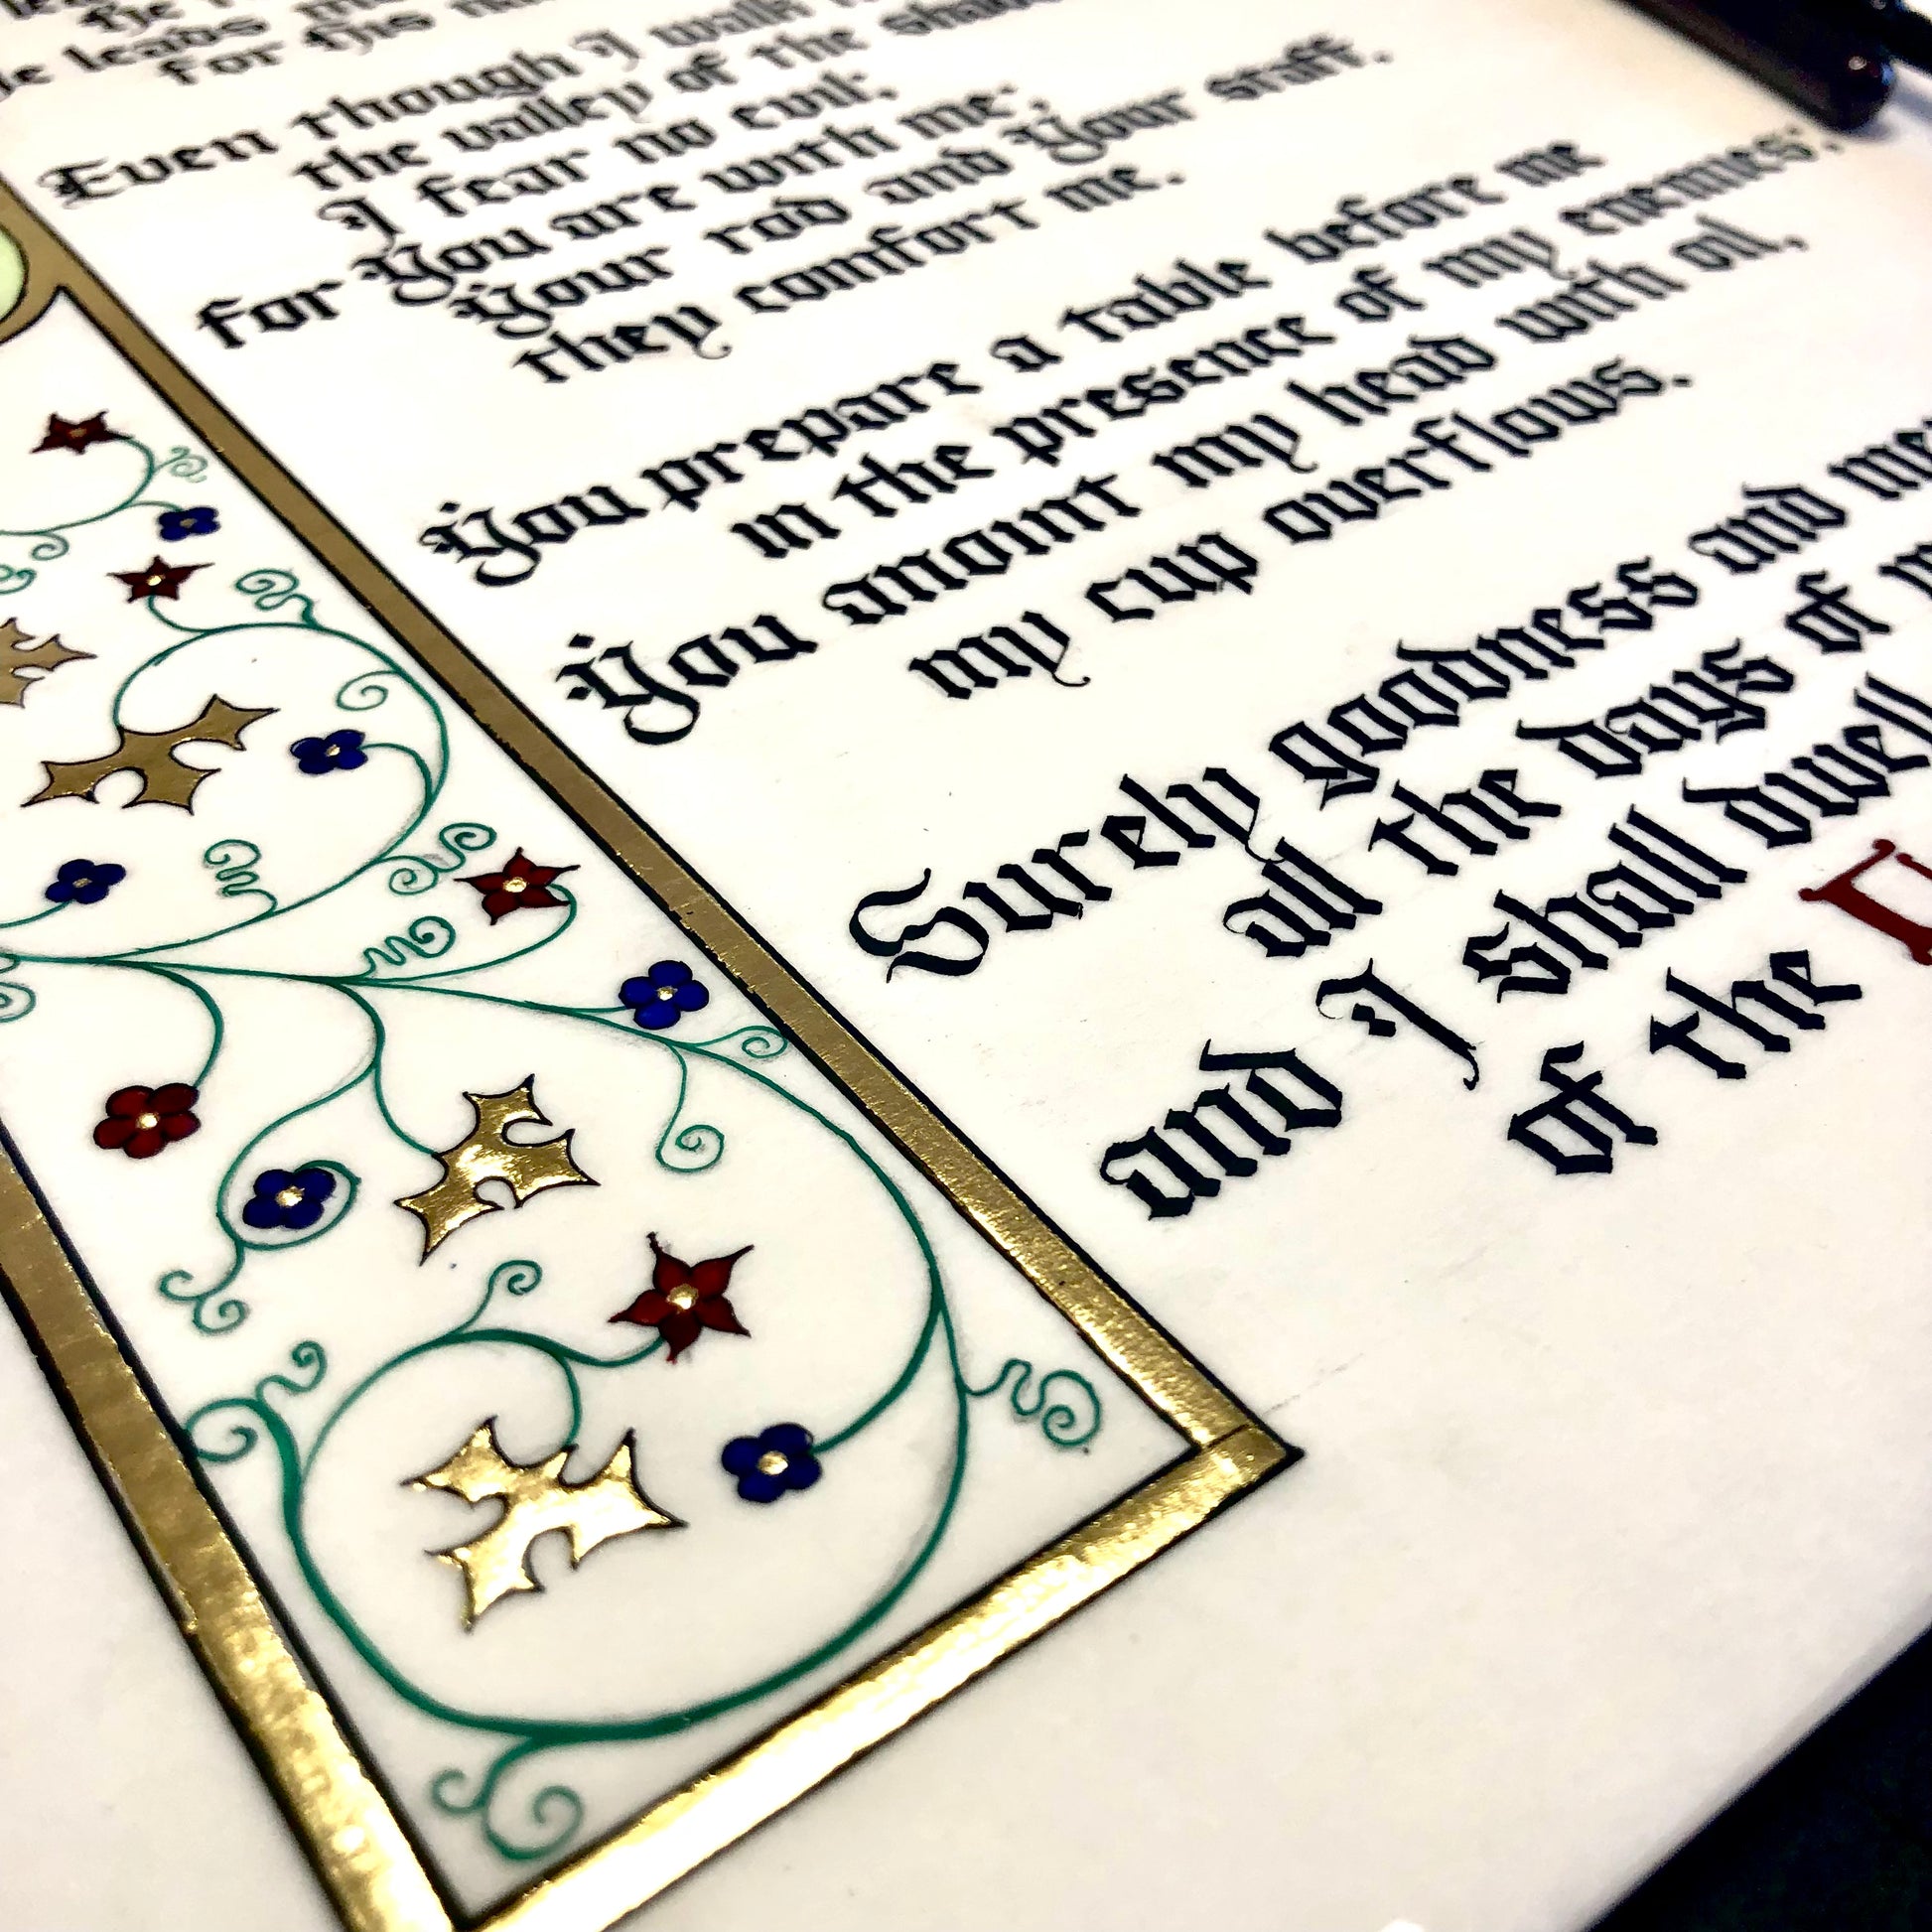 He
He leads
for His
Even though I walk
the valley of the
I fear no evil;
for You are with me;
Your rod and Your staff,
they comfort me.
You prepare a table before me
in the presence of my enemies;
You anoint my head with oil,
my cup overflows.
Surely goodness and
all the days of
and I shall dwell
of the